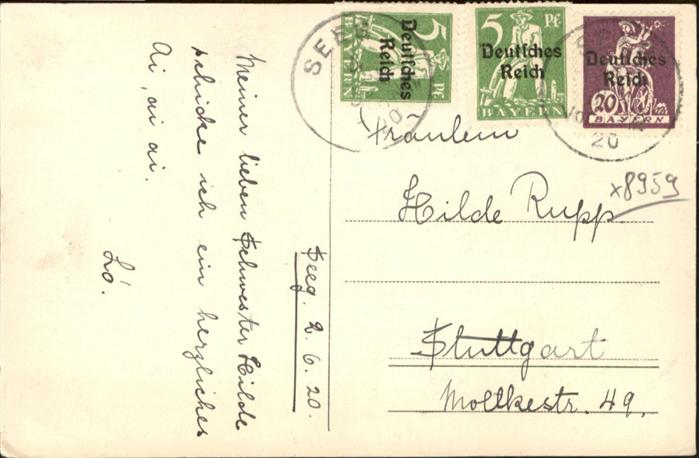 Meiner lieben Schwester Hilde
schicke ich ein herzliches
Ai, ai ai.
Lo.
Seeg. 2. 6. 20.
SEEG
20
5 Pf.
Deutsches
Reich
BAYERN
5 Pf.
Deutsches
Reich
BAYERN
Deutsches
Reich
20
BAYERN
20
Fräulein
Hilde Rupp
x8959
Stuttgart
Moltkestr. 49.